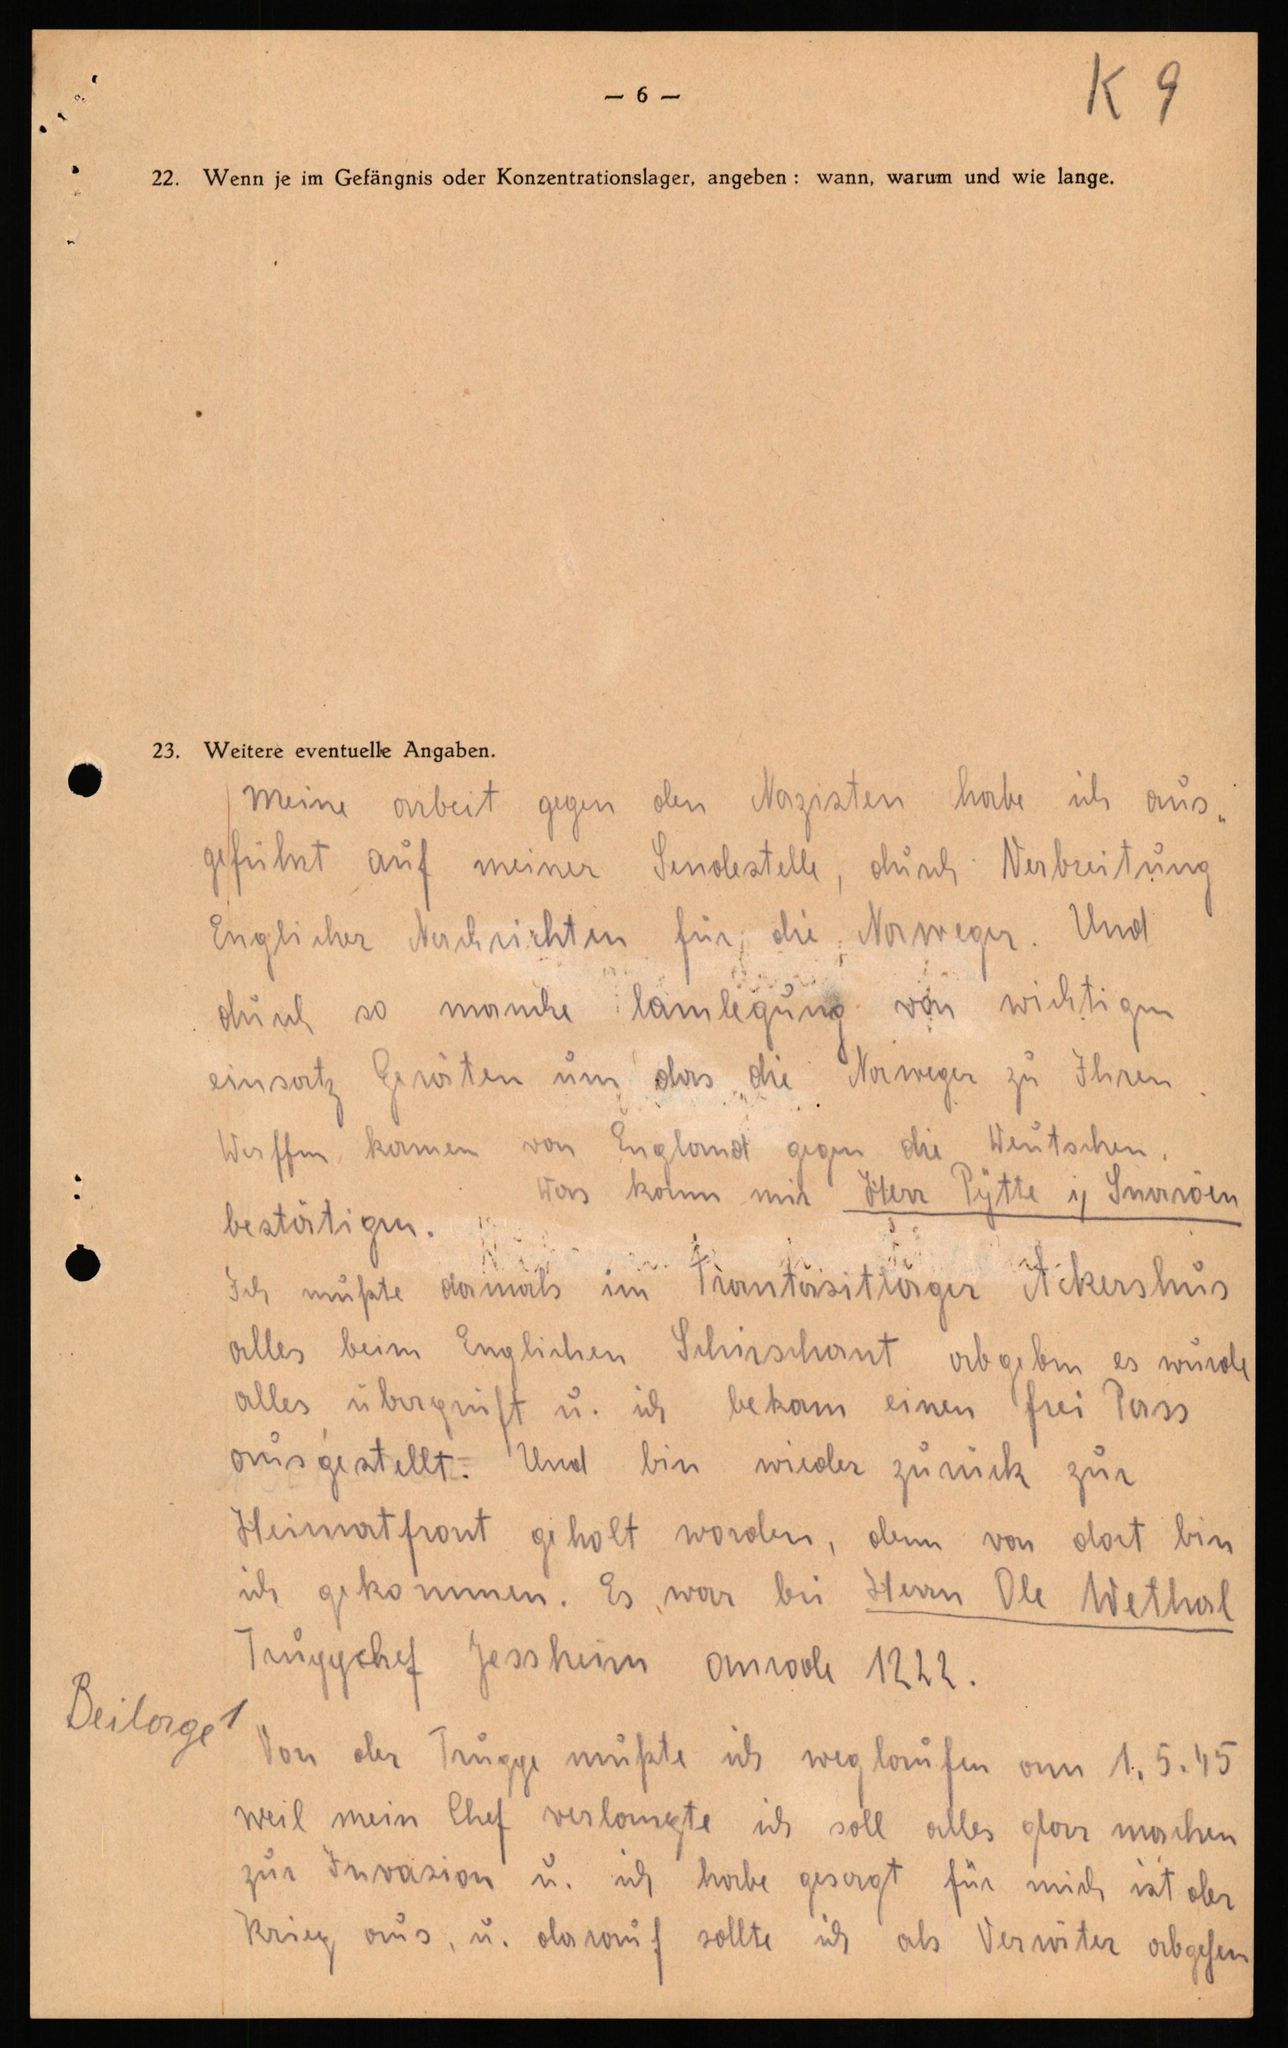 — 6 —
K 9
22. Wenn je im Gefängnis oder Konzentrationslager, angeben: wann, warum und wie lange.
23. Weitere eventuelle Angaben.
Meine arbeit gegen den Nazisten habe ich aus„
geführt auf meiner Sendestelle, durch Verbreitung
Englicher Nachrichten für die Norweger. Und
durch so manche lamlegung von wichtigen
einsatz Geräten um das die Norweger zu Ihren
Waffen kamen von England gegen die Deutschen.
Das kann mir Herr Pÿtte i/ Snaröen
bestätigen.
Ich mußte damals im Trantasitlager Akershus
alles beim Englichen Schirschant abgeben es wurde
alles überprüft u. ich bekam einen frei Pass
ausgestellt. Und bin wieder zurück zur
Heimatfront geholt worden, denn von dort bin
ich gekommen. Es war bei Herrn Ole Wethal
Truppchef Jessheim omrade 1222.
Beilage 1
Von der Truppe mußte ich weglaufen am 1.5.45
weil mein Chef verlangte ich soll alles glar machen
zur Invasion u. ich habe gesagt für mich ist der
Krieg aus, u. darauf sollte ich als Verräter